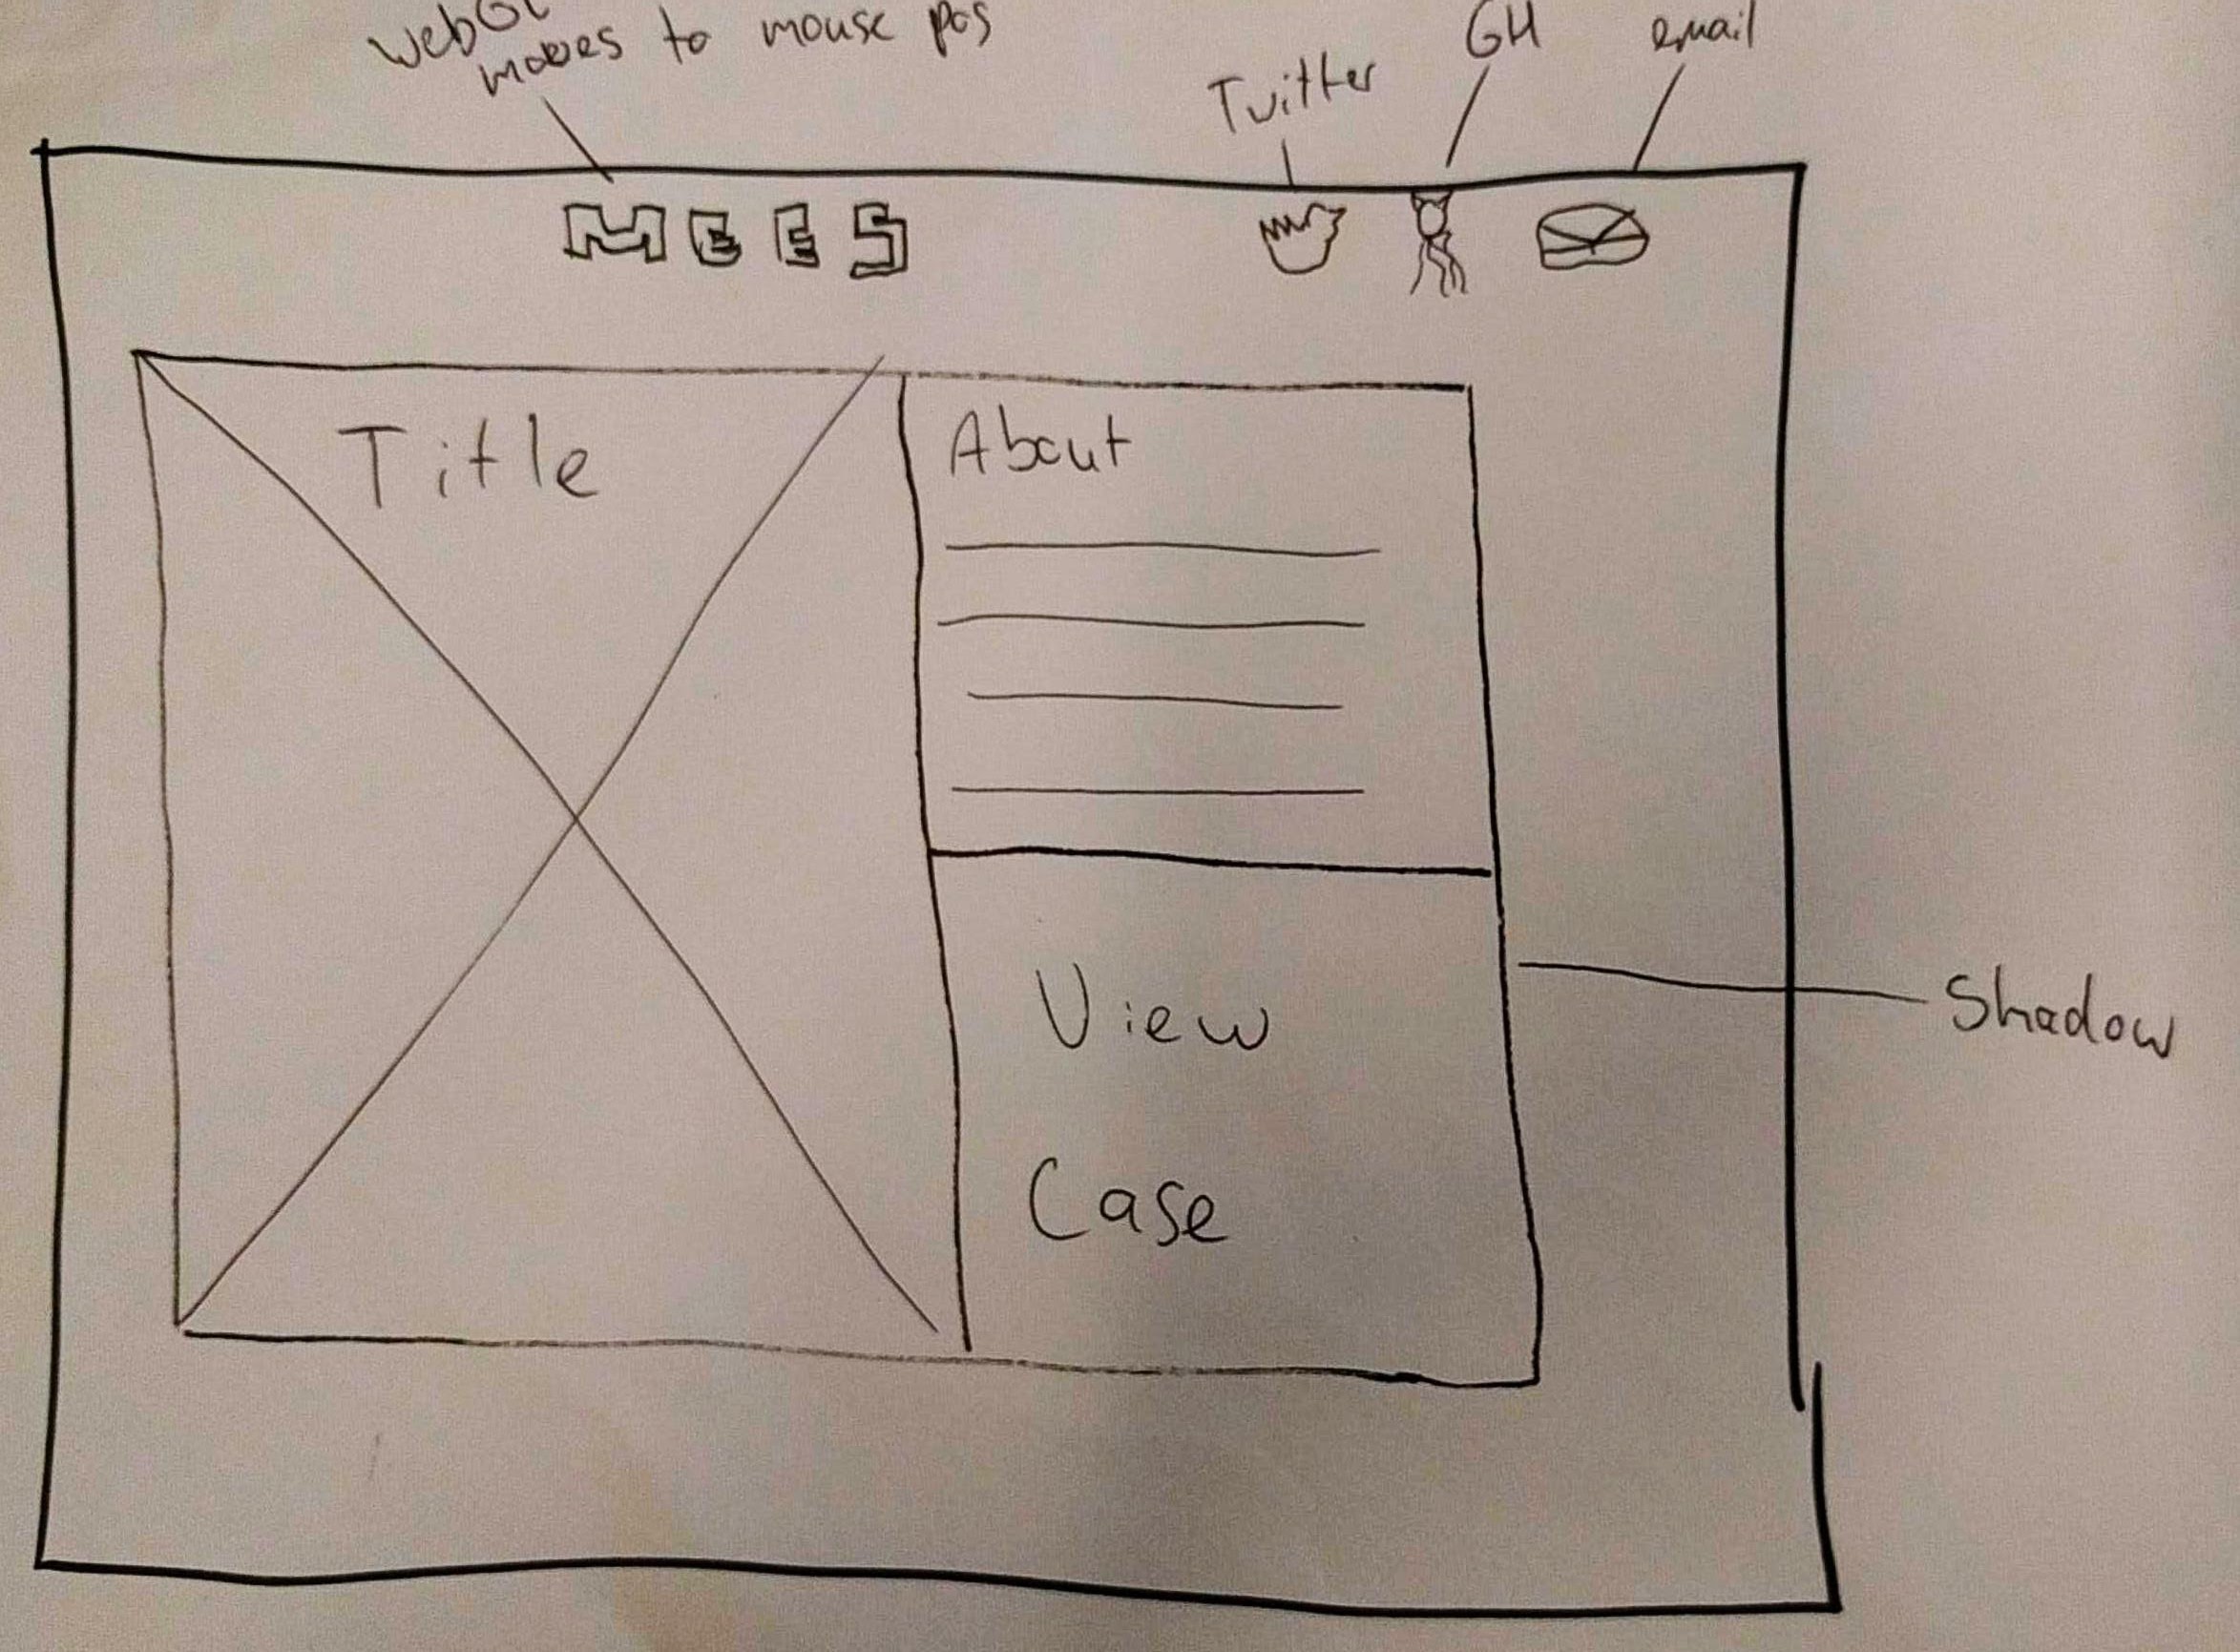 webGL
moves to mouse pos
Twitter
GH
email
MEES
Title
About
View
Case
Shadow